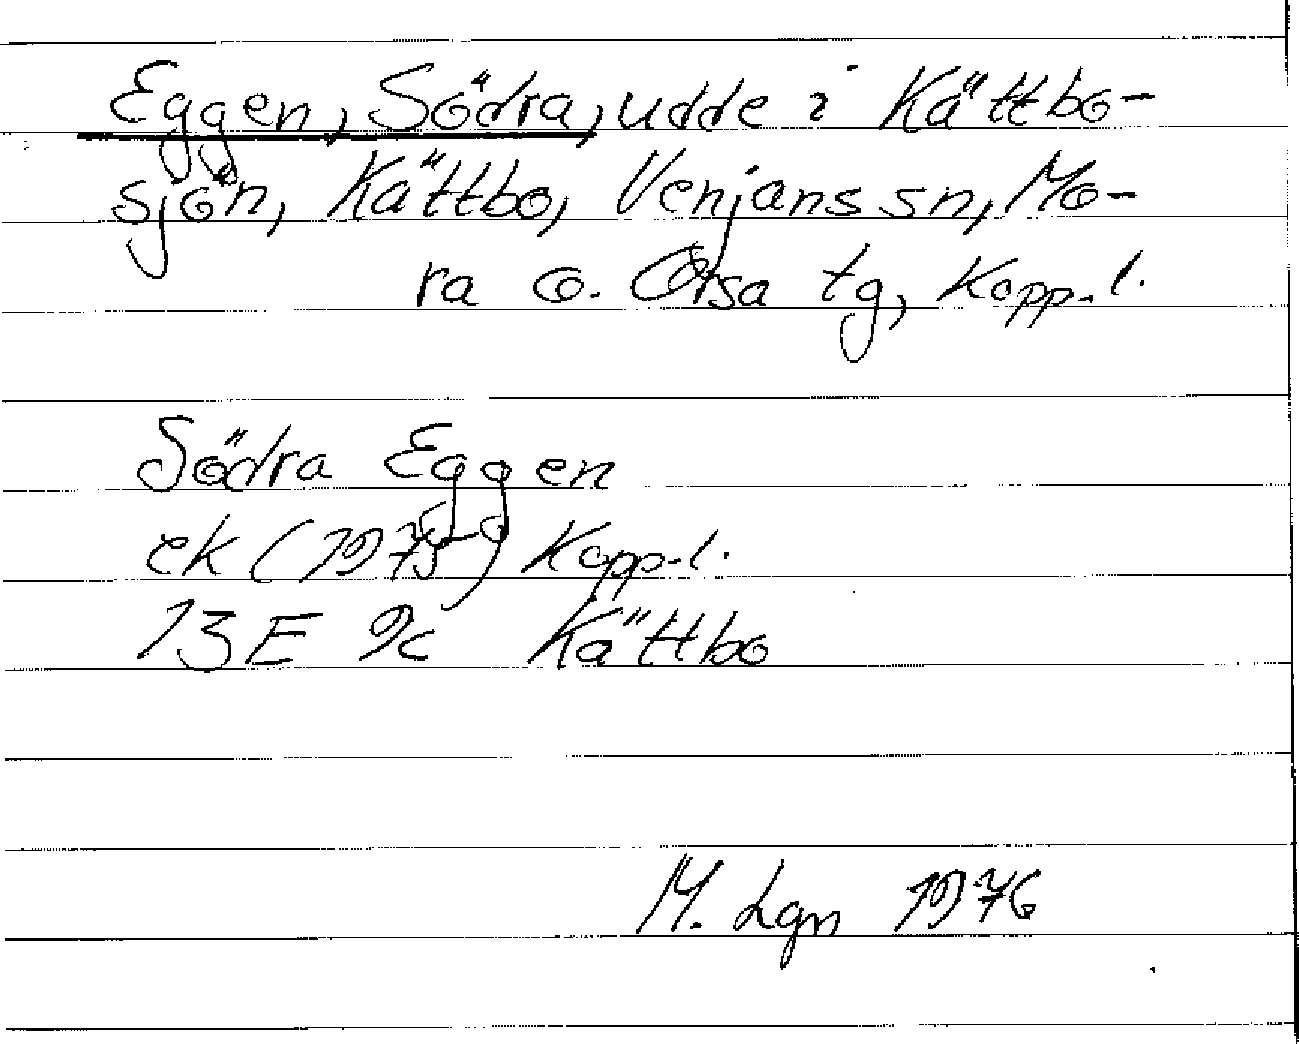 Eggen, Södra, udde i Kättbo-
sjön, Kättbo, Venjans sn, Mo-
ra o. Orsa tg, Kopp.l.
Södra Eggen
ek (1975) Kopp.l.
13E 9c Kättbo
M. Lgn 1976